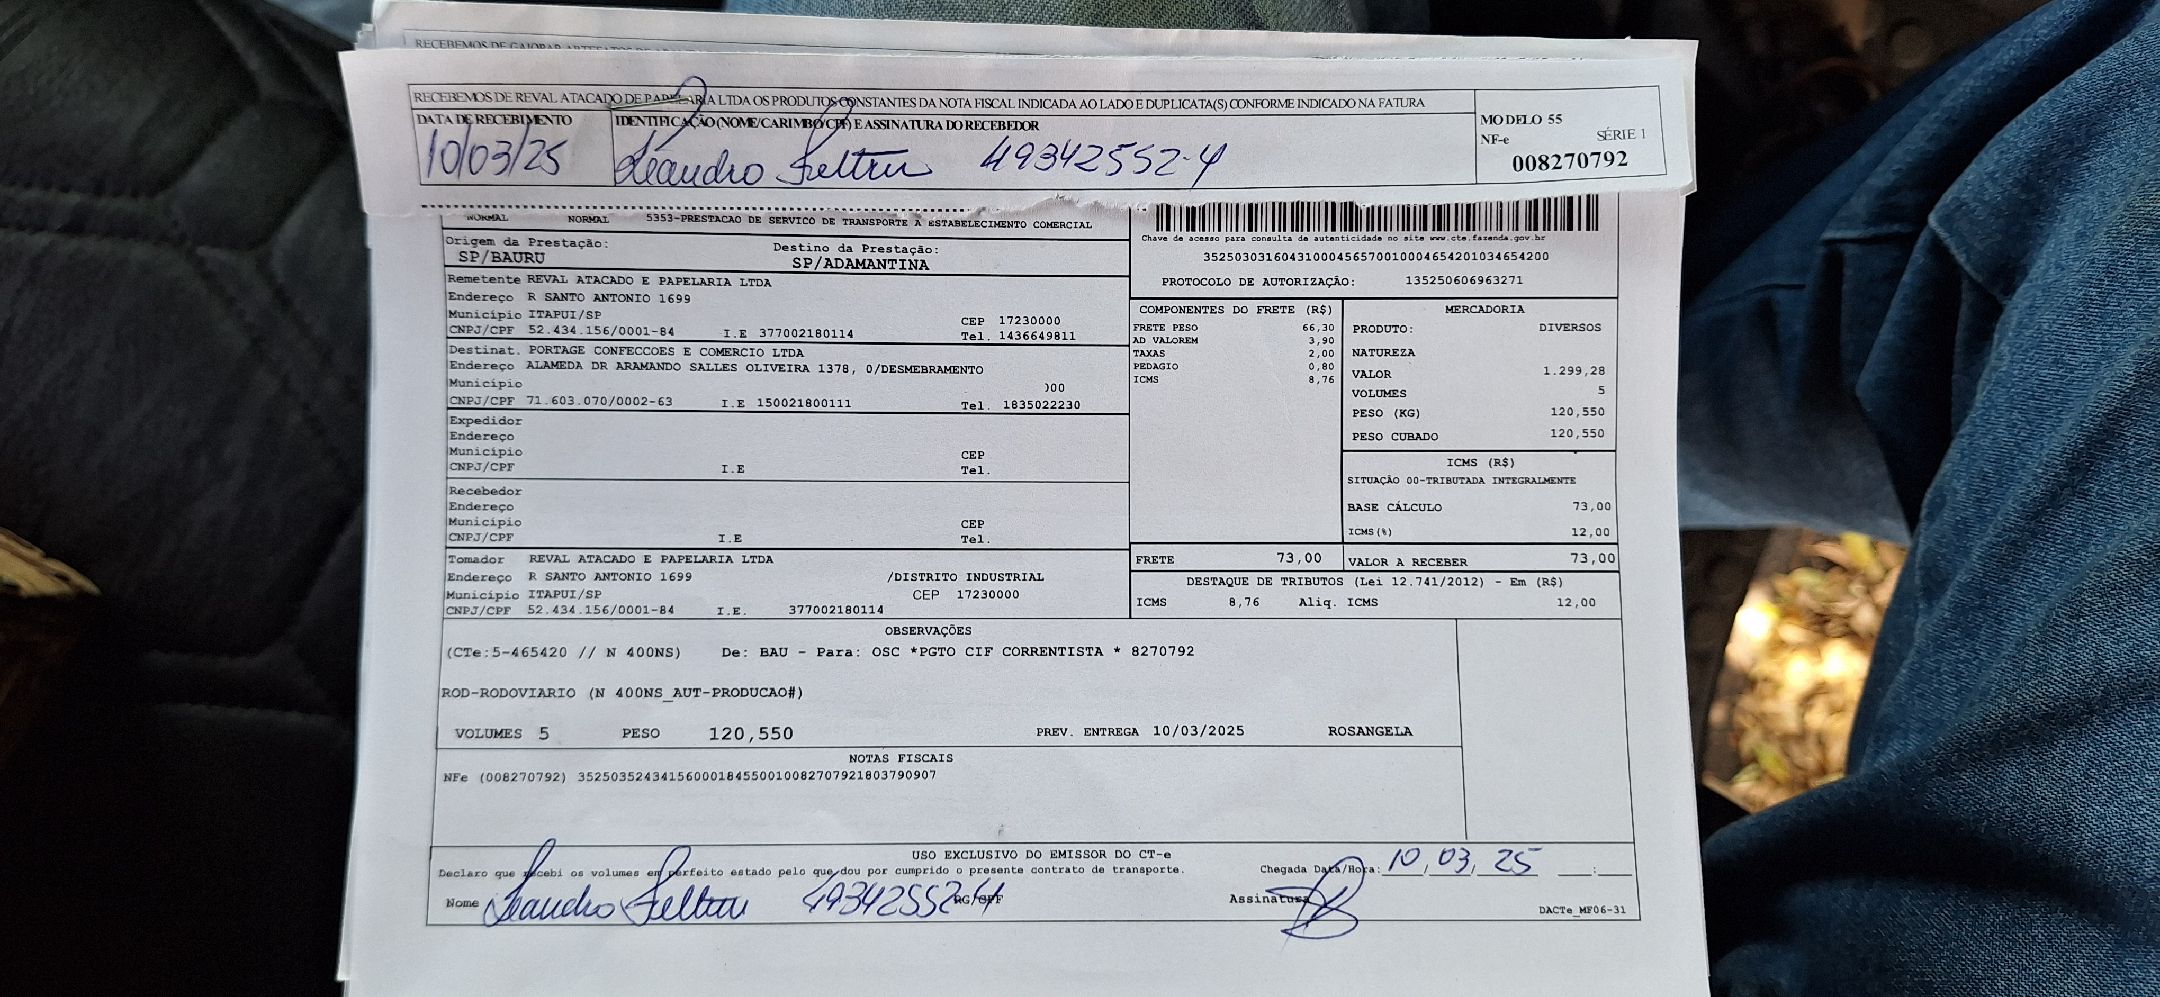 RECEBEMOS DE REVAL ATACADO DE PAPELARIA LTDA OS PRODUTOS CONSTANTES DA NOTA FISCAL INDICADA AO LADO E DUPLICATA(S) CONFORME INDICADO NA FATURA
DATA DE RECEBIMENTO IDENTIFICAÇÃO (NOME/CARIMBO/CPF) E ASSINATURA DO RECEBEDOR
10/03/25 Leandro Feltrin 49342552-4
MODELO 55
NF-e SÉRIE 1
008270792
NORMAL NORMAL 5353-PRESTACAO DE SERVICO DE TRANSPORTE A ESTABELECIMENTO COMERCIAL
Chave de acesso para consulta de autenticidade no site www.cte.fazenda.gov.br
35250303160431000456570010004654201034654200
PROTOCOLO DE AUTORIZAÇÃO: 135250606963271
Origem da Prestação: Destino da Prestação:
SP/BAURU SP/ADAMANTINA
Remetente REVAL ATACADO E PAPELARIA LTDA
Endereço R SANTO ANTONIO 1699
Município ITAPUI/SP CEP 17230000
CNPJ/CPF 52.434.156/0001-84 I.E 377002180114 Tel. 1436649811
Destinat. PORTAGE CONFECCOES E COMERCIO LTDA
Endereço ALAMEDA DR ARAMANDO SALLES OLIVEIRA 1378, 0/DESMEBRAMENTO
Município 000
CNPJ/CPF 71.603.070/0002-63 I.E 150021800111 Tel. 1835022230
Expedidor
Endereço
Município CEP
CNPJ/CPF I.E Tel.
Recebedor
Endereço
Município CEP
CNPJ/CPF I.E Tel.
Tomador REVAL ATACADO E PAPELARIA LTDA
Endereço R SANTO ANTONIO 1699 /DISTRITO INDUSTRIAL
Município ITAPUI/SP CEP 17230000
CNPJ/CPF 52.434.156/0001-84 I.E. 377002180114
COMPONENTES DO FRETE (R$)
FRETE PESO 66,30
AD VALOREM 3,90
TAXAS 2,00
PEDAGIO 0,80
ICMS 8,76
MERCADORIA
PRODUTO: DIVERSOS
NATUREZA
VALOR 1.299,28
VOLUMES 5
PESO (KG) 120,550
PESO CUBADO 120,550
ICMS (R$)
SITUAÇÃO 00-TRIBUTADA INTEGRALMENTE
BASE CÁLCULO 73,00
ICMS(%) 12,00
FRETE 73,00 VALOR A RECEBER 73,00
DESTAQUE DE TRIBUTOS (Lei 12.741/2012) - Em (R$)
ICMS 8,76 Aliq. ICMS 12,00
OBSERVAÇÕES
(CTe:5-465420 // N 400NS) De: BAU - Para: OSC *PGTO CIF CORRENTISTA * 8270792
ROD-RODOVIARIO (N 400NS_AUT-PRODUCAO#)
VOLUMES 5 PESO 120,550 PREV. ENTREGA 10/03/2025 ROSANGELA
NOTAS FISCAIS
NFe (008270792) 35250352434156000184550010082707921803790907
USO EXCLUSIVO DO EMISSOR DO CT-e
Declaro que recebi os volumes em perfeito estado pelo que dou por cumprido o presente contrato de transporte. Chegada Data/Hora: 10/03/25 __:__
Nome Leandro Feltrin 49342552-4 RG/CPF Assinatura
DACTe_MF06-31